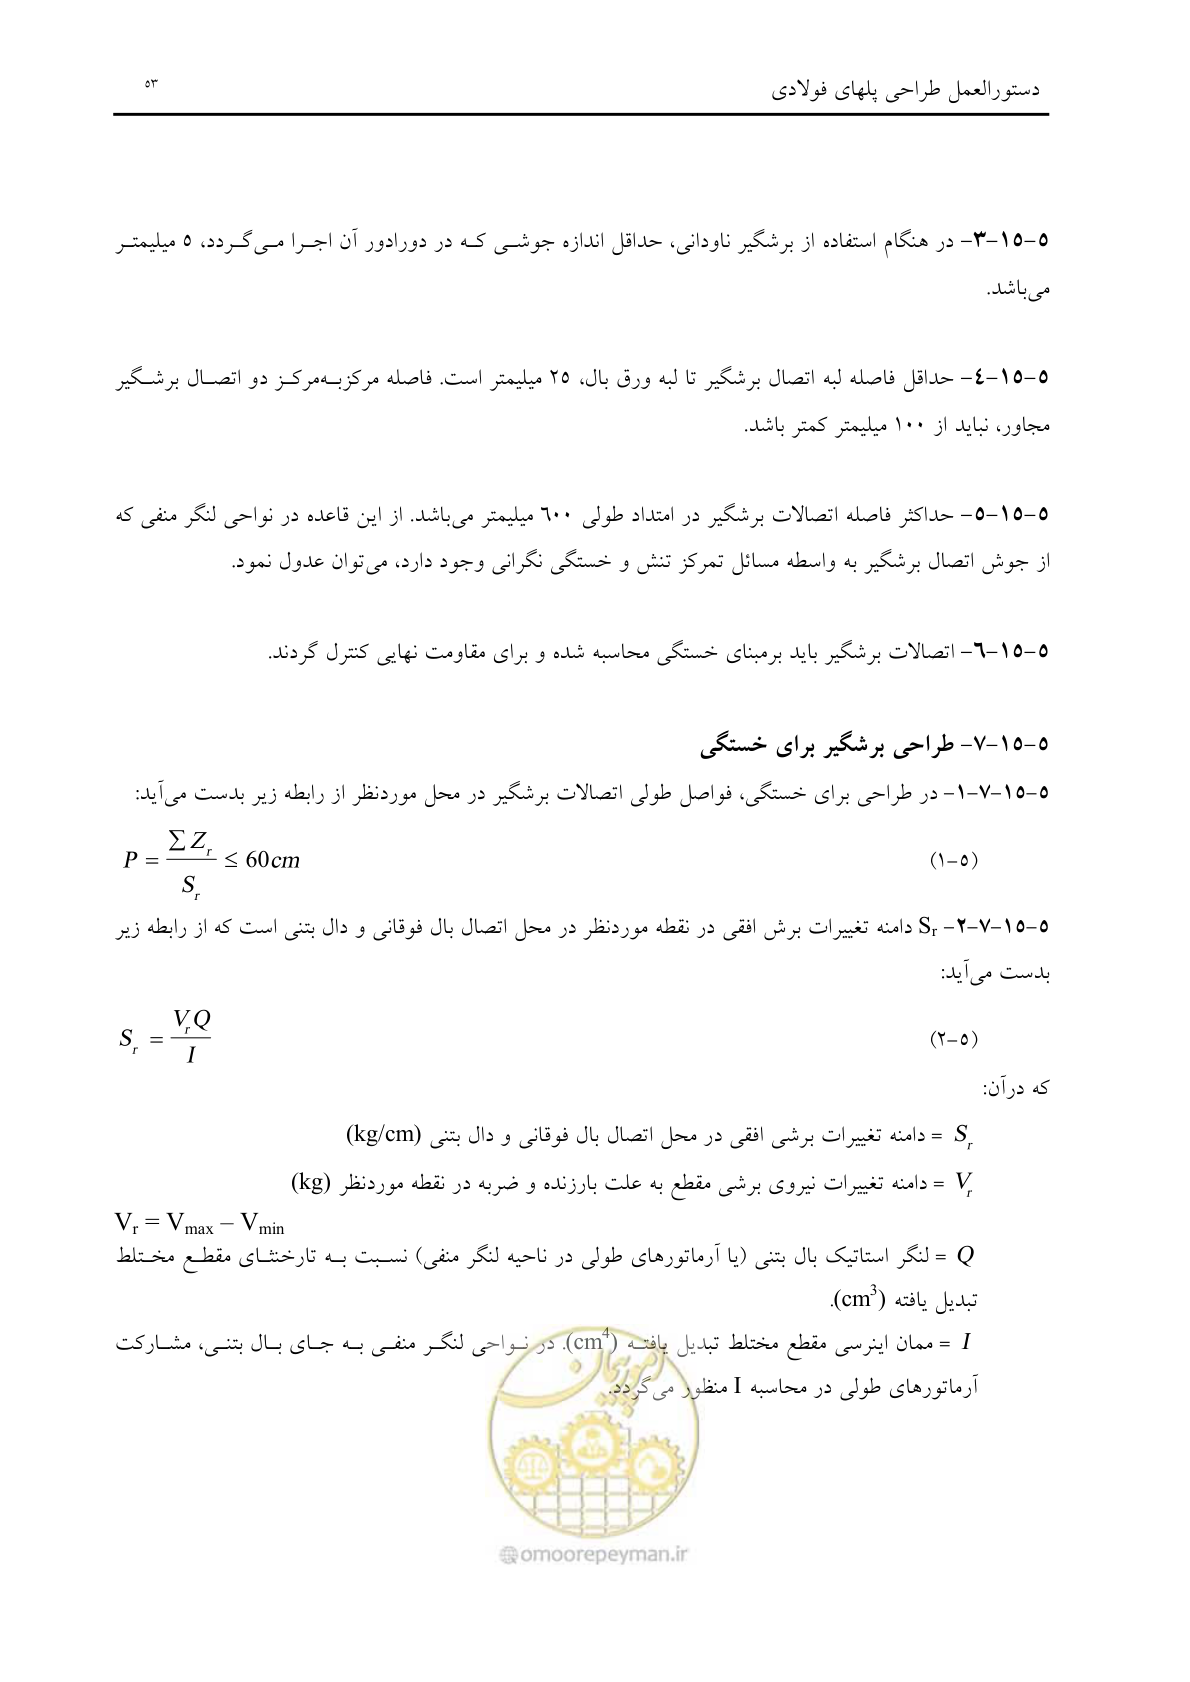 دستورالعمل طراحی پلهای فولادی ٥٣
٥-١٥-٣- در هنگام استفاده از برشگیر ناودانی، حداقل اندازه جوشی که در دورادور آن اجرا می‌گردد، ٥ میلیمتر
می‌باشد.
٥-١٥-٤- حداقل فاصله لبه اتصال برشگیر تا لبه ورق بال، ٢٥ میلیمتر است. فاصله مرکزبه‌مرکز دو اتصال برشگیر
مجاور، نباید از ١٠٠ میلیمتر کمتر باشد.
٥-١٥-٥- حداکثر فاصله اتصالات برشگیر در امتداد طولی ٦٠٠ میلیمتر می‌باشد. از این قاعده در نواحی لنگر منفی که
از جوش اتصال برشگیر به واسطه مسائل تمرکز تنش و خستگی نگرانی وجود دارد، می‌توان عدول نمود.
٥-١٥-٦- اتصالات برشگیر باید برمبنای خستگی محاسبه شده و برای مقاومت نهایی کنترل گردند.
٥-١٥-٧- طراحی برشگیر برای خستگی
٥-١٥-٧-١- در طراحی برای خستگی، فواصل طولی اتصالات برشگیر در محل موردنظر از رابطه زیر بدست می‌آید:
(٥-١) P = ∑Z_r / S_r ≤ 60cm
٥-١٥-٧-٢- S_r دامنه تغییرات برش افقی در نقطه موردنظر در محل اتصال بال فوقانی و دال بتنی است که از رابطه زیر
بدست می‌آید:
(٥-٢) S_r = V_r Q / I
که درآن:
S_r = دامنه تغییرات برشی افقی در محل اتصال بال فوقانی و دال بتنی (kg/cm)
V_r = دامنه تغییرات نیروی برشی مقطع به علت بارزنده و ضربه در نقطه موردنظر (kg)
V_r = V_max – V_min
Q = لنگر استاتیک بال بتنی (یا آرماتورهای طولی در ناحیه لنگر منفی) نسبت به تارخنثای مقطع مختلط
تبدیل یافته (cm³).
I = ممان اینرسی مقطع مختلط تبدیل یافته (cm⁴). در نواحی لنگر منفی به جای بال بتنی، مشارکت
آرماتورهای طولی در محاسبه I منظور می‌گردد.
امور پیمان
@omoorepeyman.ir